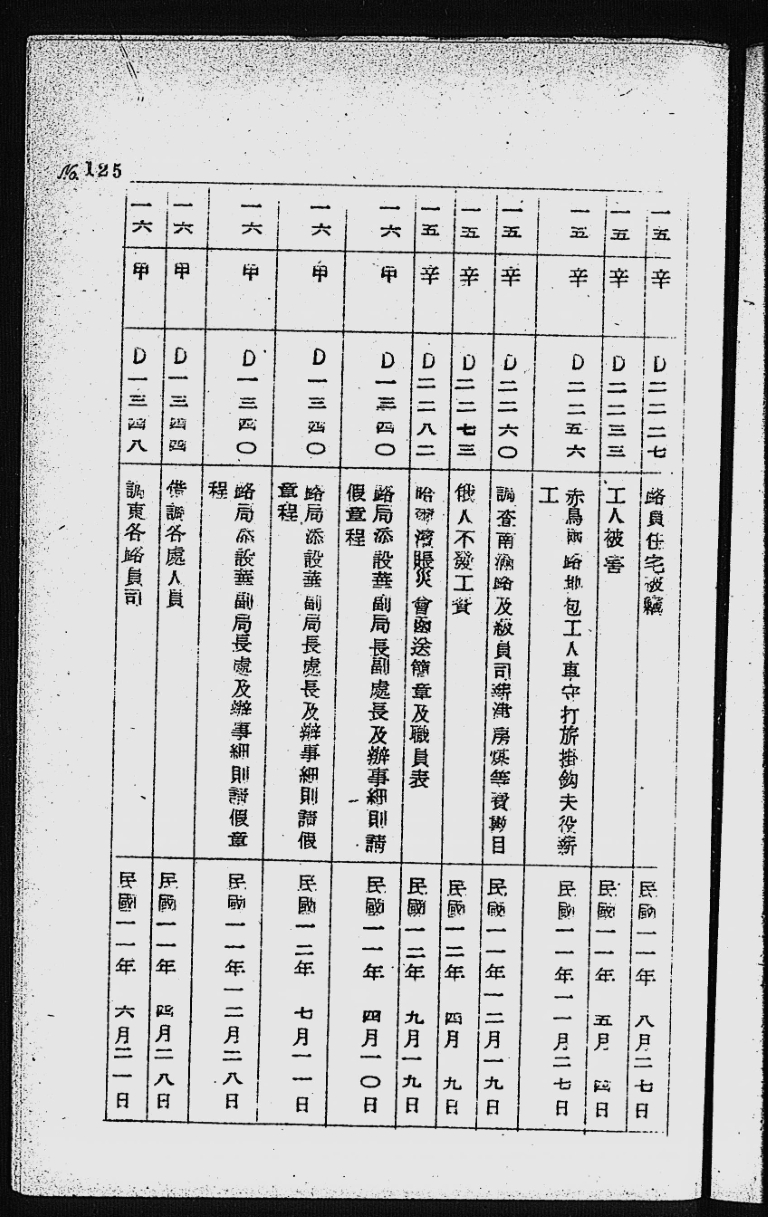 No. 125
一五 辛 D二二二七 路員住宅被竊 民國一一年 八月二七日
一五 辛 D二二三三 工人被害 民國一一年 五月 四日
一五 辛 D二二五六 赤烏兩路 包工人車守打旂掛鈎夫役薪
工 民國一一年一一月二七日
一五 辛 D二二六〇 調査南滿路及 員司薪 房煤等費數目 民國一一年一二月一九日
一五 辛 D二二七三 俄人不發工資 民國一二年 四月 九日
一五 辛 D二二八二 哈爾濱賬災會函送簡章及職員表 民國一二年 九月一九日
一六 甲 D一三四〇 路局添設華副局長副處長及辦事細則請
假章程 民國一一年 四月一〇日
一六 甲 D一三四〇 路局添設華副局長處長及辦事細則請假
章程 民國一二年 七月一一日
一六 甲 D一三四〇 路局添設華副局長處及辦事細則請假章
程 民國一一年一二月二八日
一六 甲 D一三四四 借調各處人員 民國一一年 四月二八日
一六 甲 D一三四八 調東各路員司 民國一一年 六月二一日